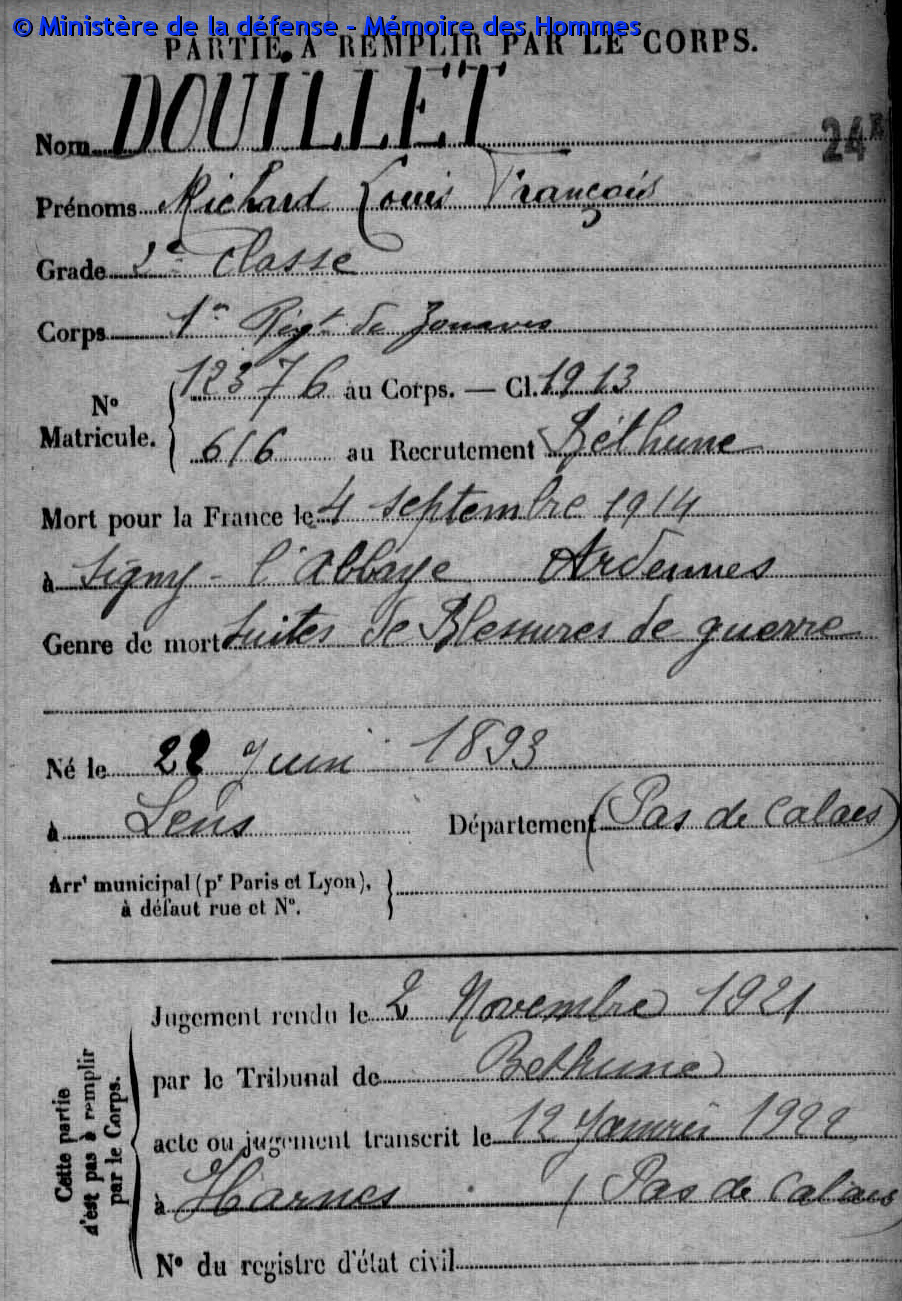 © Ministère de la défense - Mémoire des Hommes
PARTIE A REMPLIR PAR LE CORPS.
Nom DOUILLET
24
Prénoms Richard Louis François
Grade 2e Classe
Corps 1er Régt de Zouaves
No Matricule. 12376 au Corps. — Cl. 1913
616 au Recrutement Béthune
Mort pour la France le 4 septembre 1914
à Signy-l'Abbaye Ardennes
Genre de mort Suites de Blessures de guerre
Né le 22 Juin 1893
à Lens Département (Pas de Calais)
Arrt municipal (pr Paris et Lyon),
à défaut rue et No.
Cette partie
n'est pas à remplir
par le Corps.
Jugement rendu le 2 Novembre 1921
par le Tribunal de Béthune
acte ou jugement transcrit le 12 Janvier 1922
à Harnes (Pas de Calais)
No du registre d'état civil